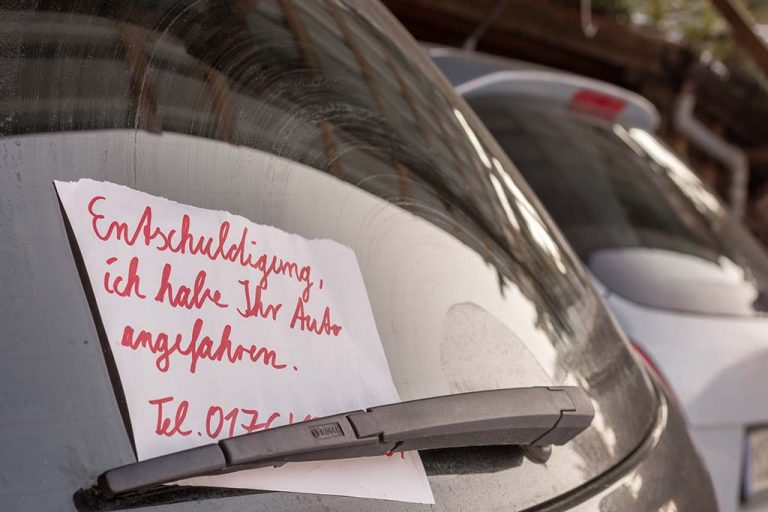 Entschuldigung,
ich habe Ihr Auto
angefahren.
Tel. 0176
BOSCH